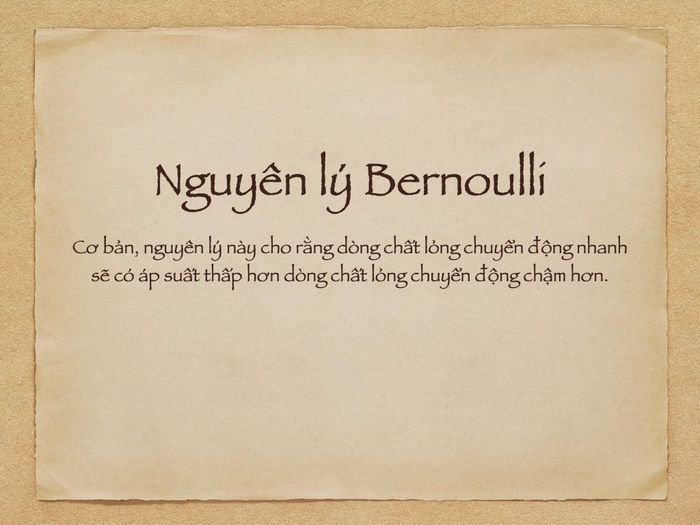 Nguyên lý Bernoulli
Cơ bản, nguyên lý này cho rằng dòng chất lỏng chuyển động nhanh
sẽ có áp suất thấp hơn dòng chất lỏng chuyển động chậm hơn.